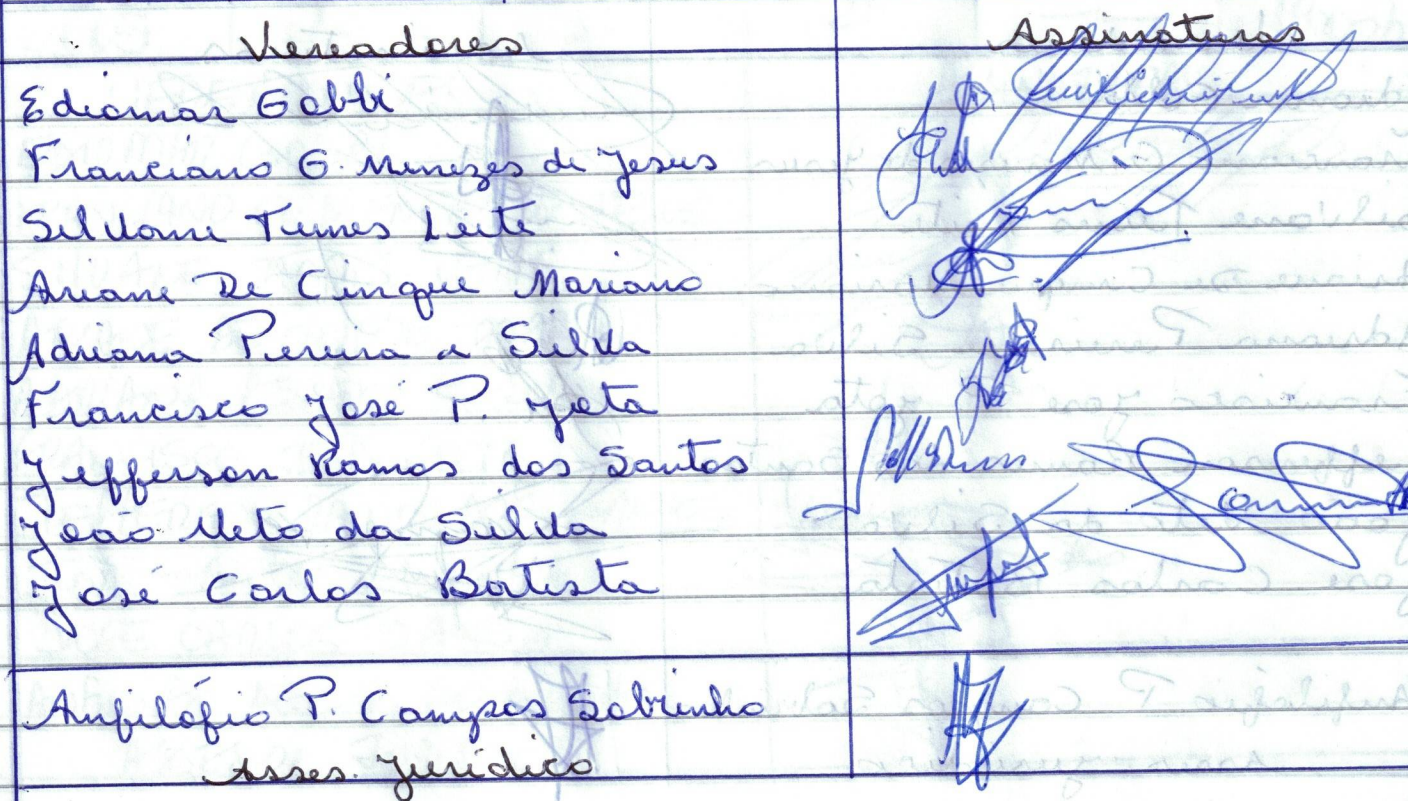 Vereadores Assinaturas
Ediomar Gobbi
Franciano G. Menezes de Jesus
Silvane Tunes Leite
Ariane De Cinque Mariano
Adriana Pereira a Silva
Francisco José P. Jota
Jefferson Ramos dos Santos
João Neto da Silva
José Carlos Batista
Anfilófio P. Campos Sobrinho
Asses. Jurídico